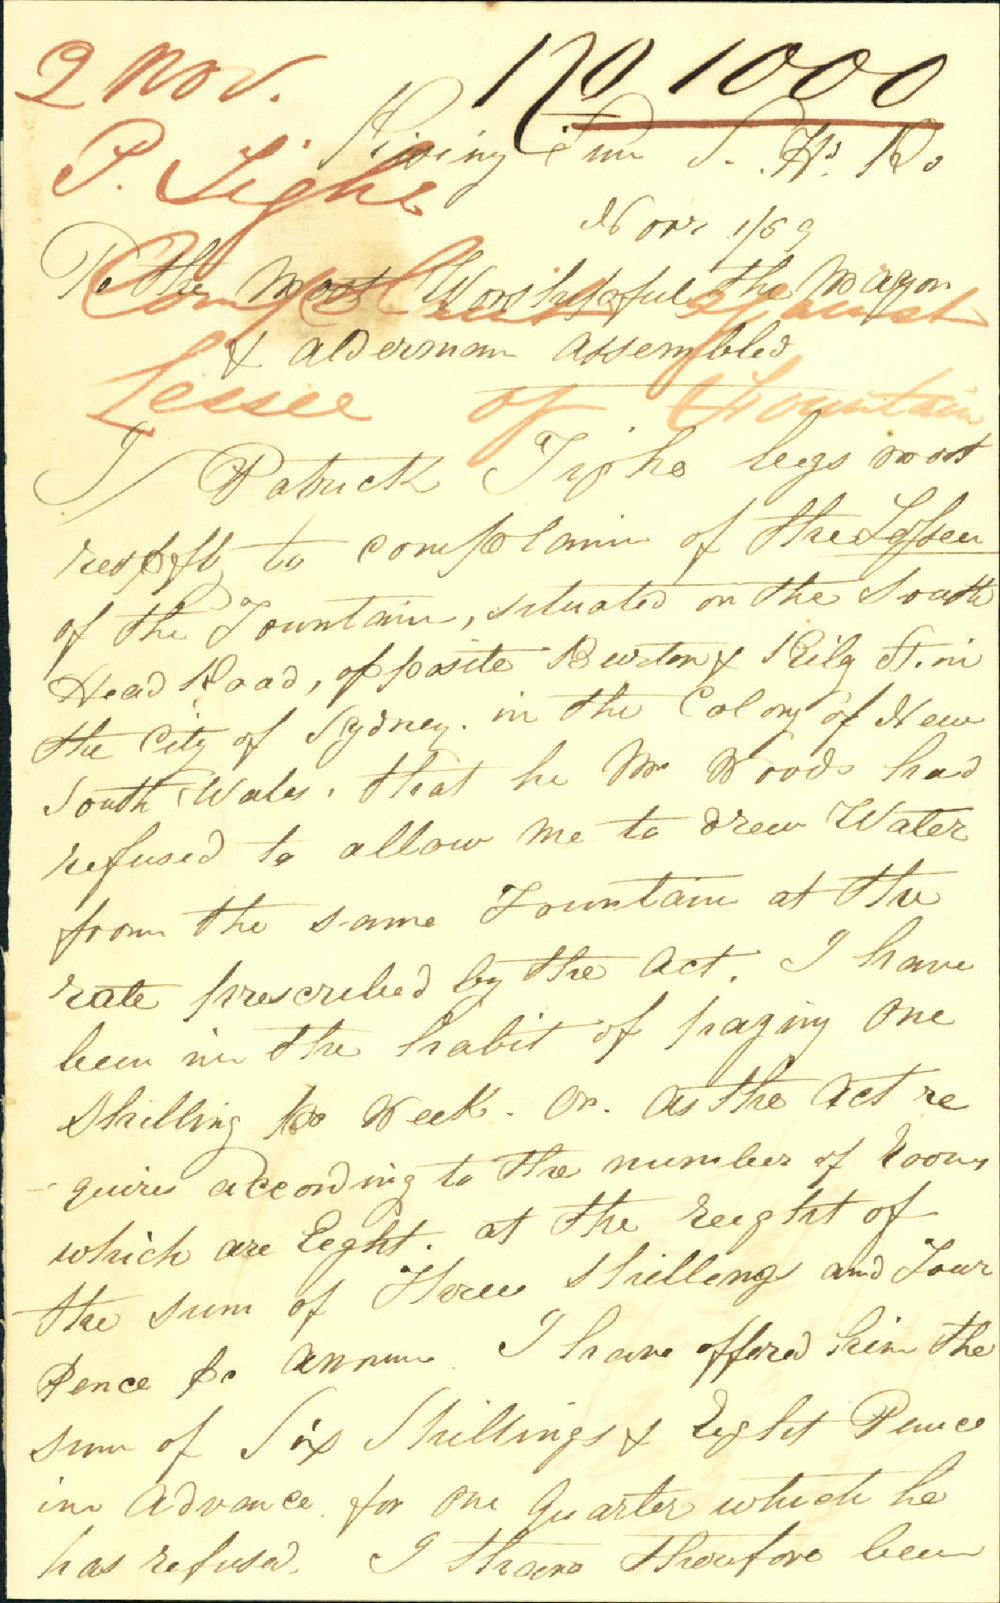 2 Nov.
No 1000
P. Tighe
Complaint against
Lessee of Fountain
Rising Sun S. Hd. Rd
Novr 1/59
To the Most Worshipful the Mayor
& Alderman Assembled
I Patrick Tighe begs most
respflt to complain of the Lessee
of the Fountain, situated on the South
Head Road, opposite Burton & Rily St. in
the City of Sydney. in the Colony of New
South Wales. that he Mr Woods had
refused to allow me to drew Water
from the same Fountain at the
rate prescribed by the Act. I have
been in the habit of paying One
Shilling per Week. Or. As the Act re
-quires according to the number of Rooms
which are Eeght. at the reight of
the sum of Three Shillengs and Four
Pence Pr Annum I have offered him the
sum of Six Shillings & Eight Pence
in Advance for One Quarter which he
has refused. I have therefore been